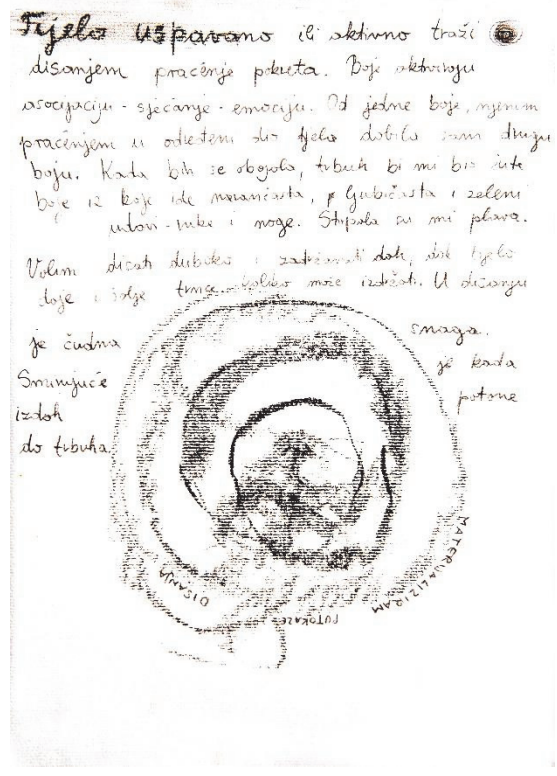 Tijelo uspavano ili aktivno traži
disanjem praćenje pokreta. Boje aktiviraju
asocijaciju - sjećanje - emociju. Od jedne boje, njenim
praćenjem u određeni dio tijela dobila sam drugu
boju. Kada bih se obojala, trbuh bi mi bio žute
boje iz koje ide narančasta, ljubičasta i zeleni
udovi - ruke i noge. Stopala su mi plava.
Volim disati duboko i zadržavati dah, dok tijelo
daje i šalje koliko može izdržati. U disanju
je čudna snaga.
Smirujuće je kada
izdah potone
do trbuha.
MATERIJALIZIRAM
PUTOKAZE
DISANJA